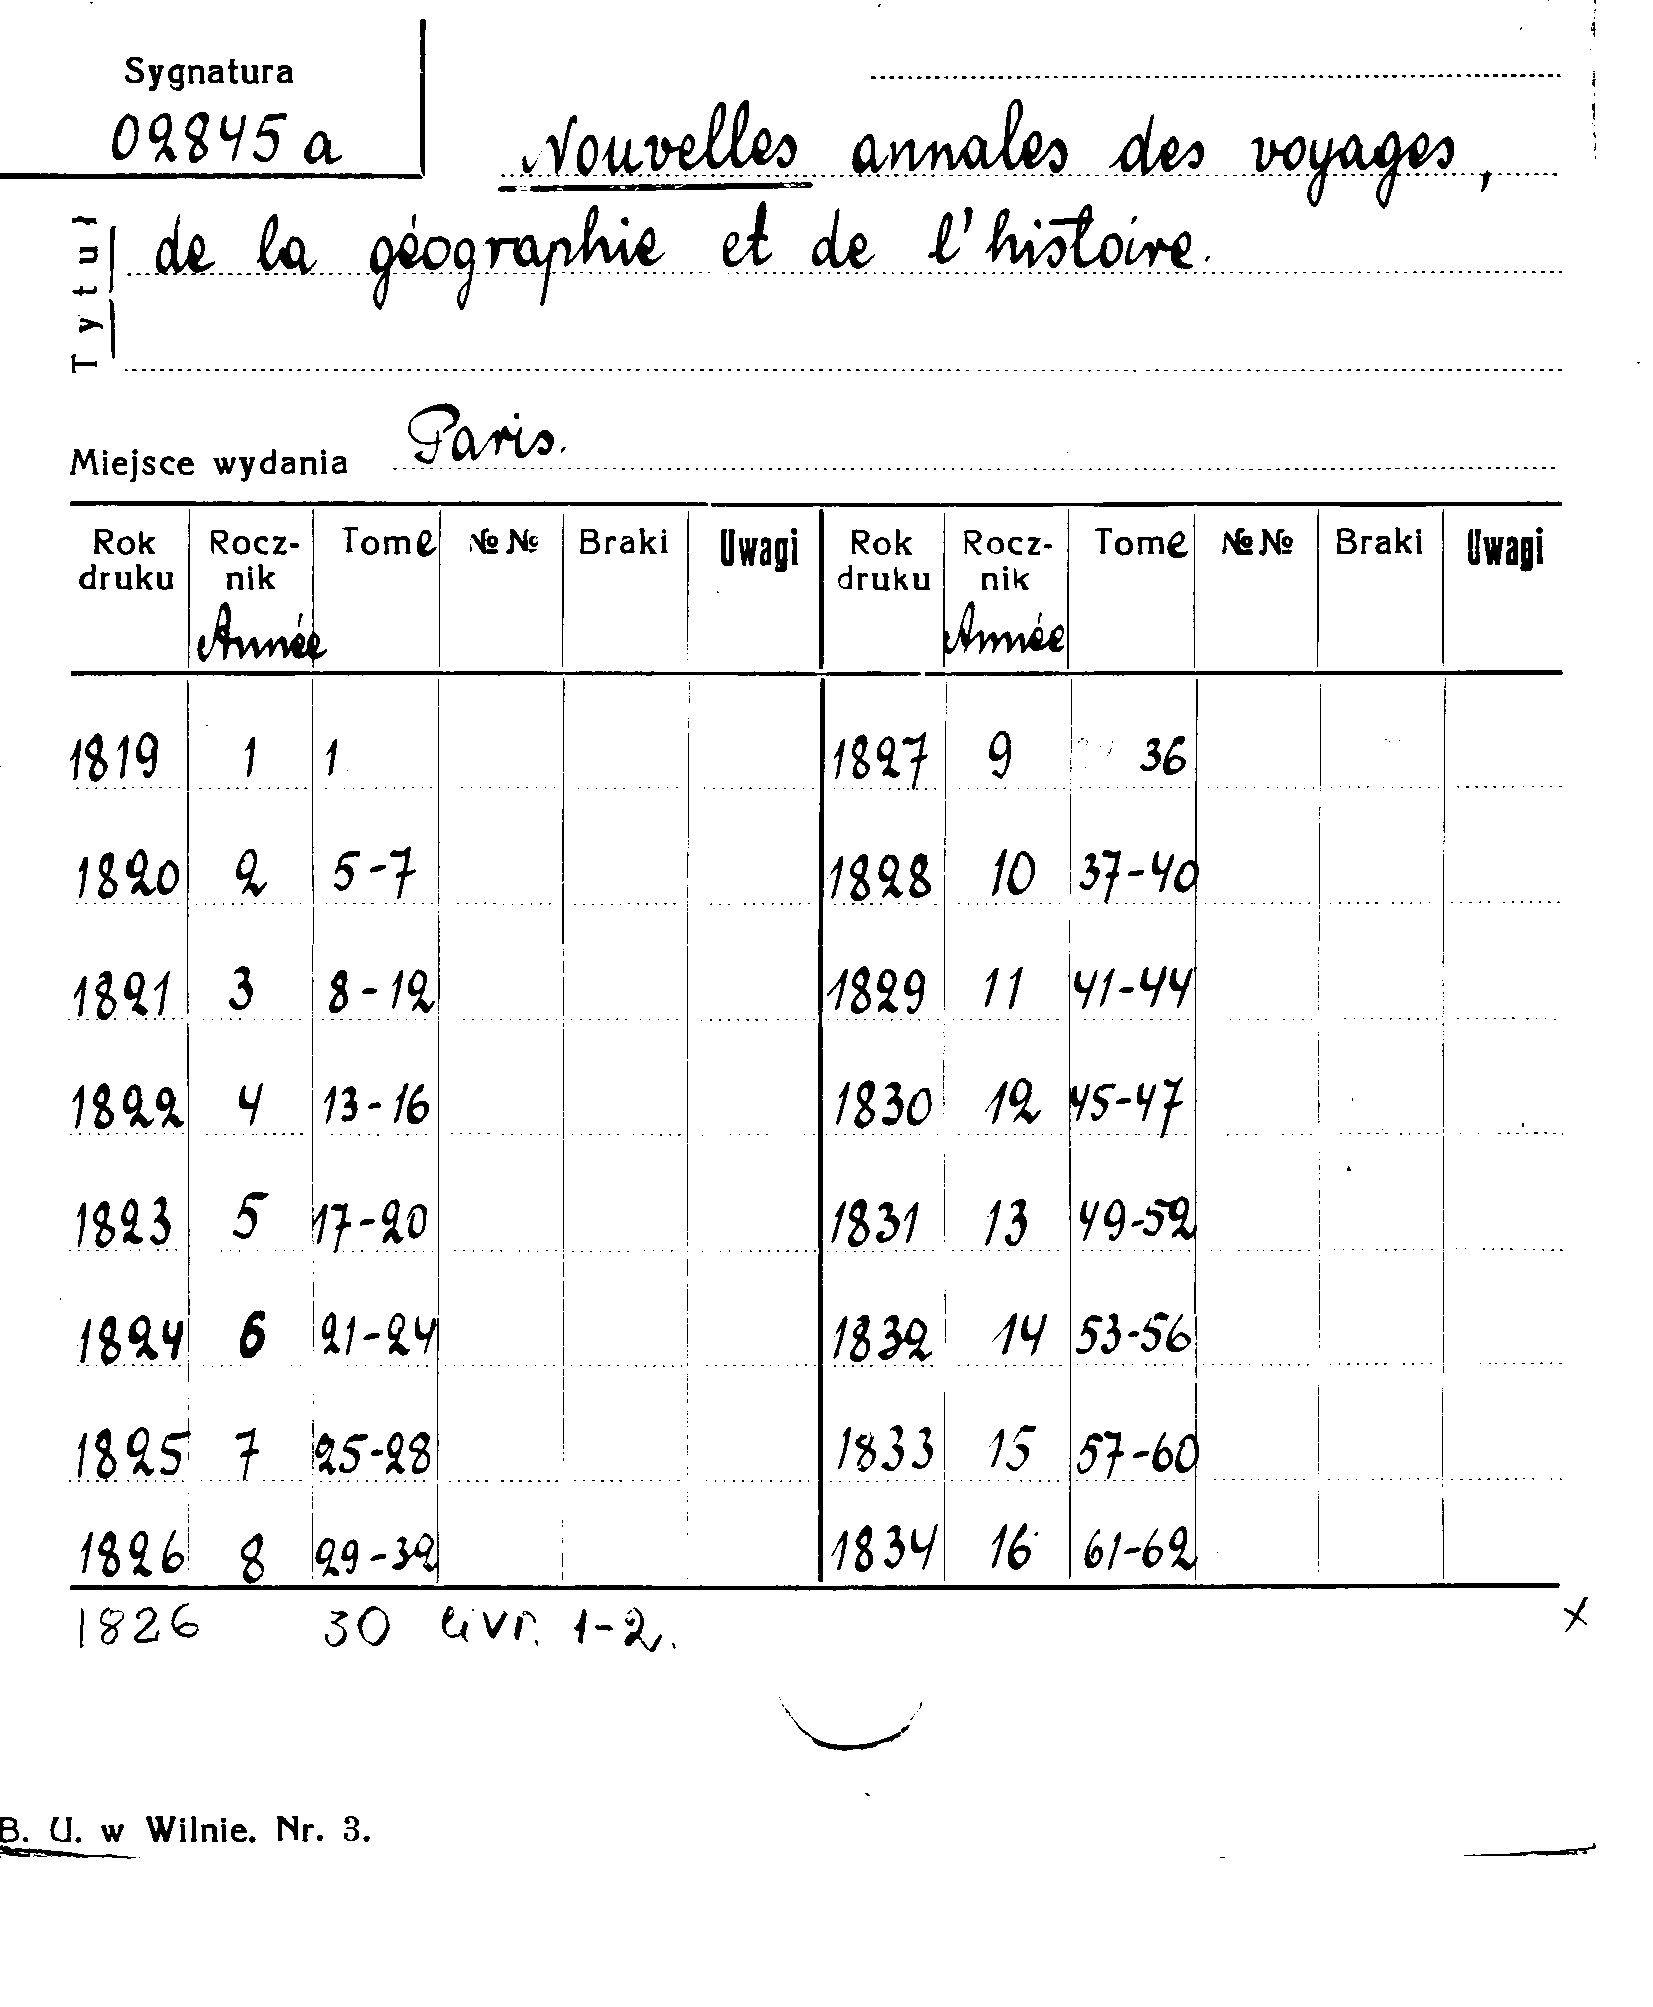 Sygnatura
02845 a
Nouvelles annales des voyages,
Tytuł
de la géographie et de l'histoire.
Miejsce wydania Paris.
Rok druku Rocz-nik Année Tome №№ Braki Uwagi Rok druku Rocz-nik Année Tome №№ Braki Uwagi
1819 1 1 1827 9 36
1820 2 5-7 1828 10 37-40
1821 3 8-12 1829 11 41-44
1822 4 13-16 1830 12 45-47
1823 5 17-20 1831 13 49-52
1824 6 21-24 1832 14 53-56
1825 7 25-28 1833 15 57-60
1826 8 29-32 1834 16 61-62
1826 30 livr. 1-2. x
B. U. w Wilnie. Nr. 3.